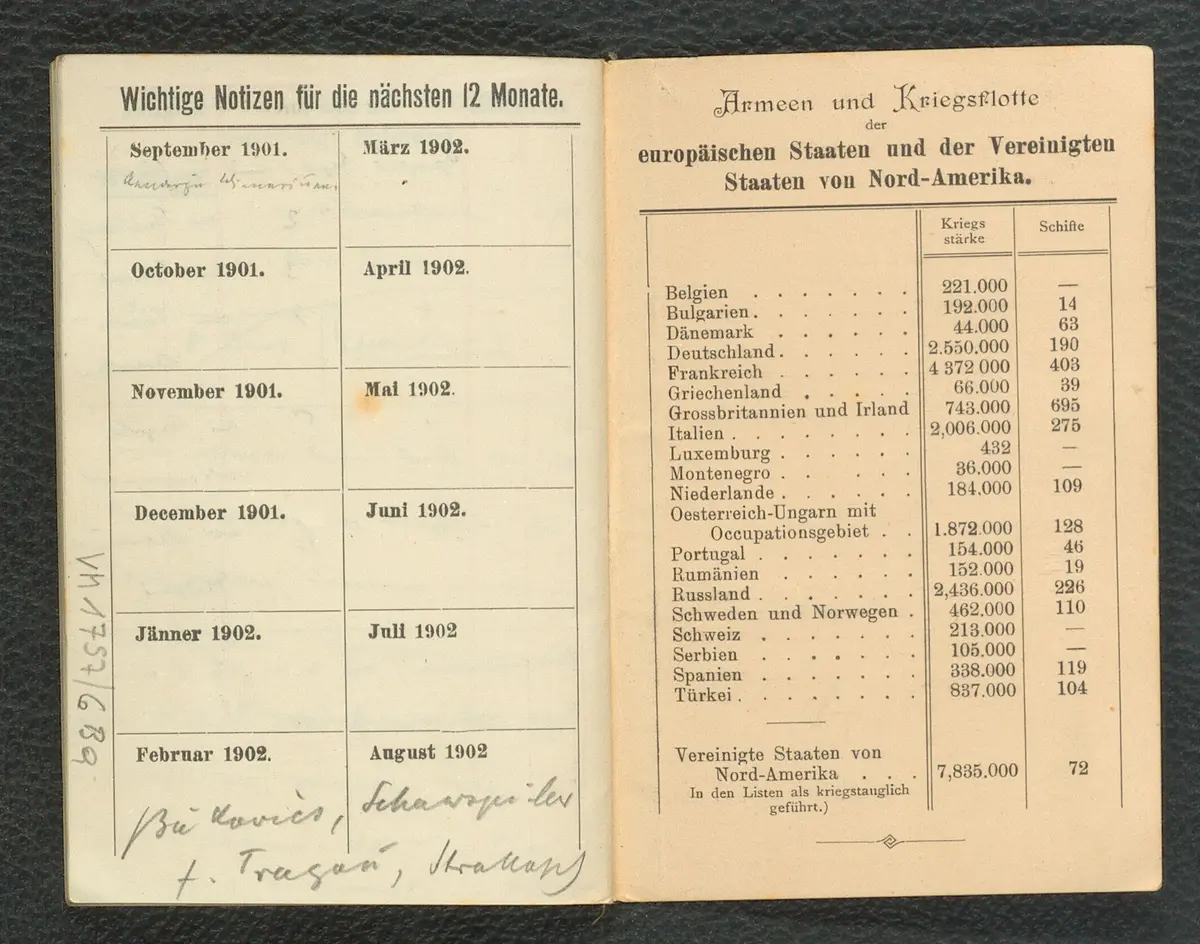 Wichtige Notizen für die nächsten 12 Monate.
September 1901.
März 1902.
October 1901.
April 1902.
November 1901.
Mai 1902.
December 1901.
Juni 1902.
Jänner 1902.
Juli 1902
Februar 1902.
August 1902
Bukovics, Schauspieler
f. Tragöd, Strakosch
VM 1757/6 Bg
Armeen und Kriegsflotte
der
europäischen Staaten und der Vereinigten
Staaten von Nord-Amerika.
Kriegs
stärke
Schiffe
Belgien . . . . . . . 221.000 —
Bulgarien . . . . . . 192.000 14
Dänemark . . . . . . 44.000 63
Deutschland . . . . . . 2.550.000 190
Frankreich . . . . . . 4 372 000 403
Griechenland . . . . . 66.000 39
Grossbritannien und Irland 743.000 695
Italien . . . . . . . . 2,006.000 275
Luxemburg . . . . . . 432 —
Montenegro . . . . . . 36.000 —
Niederlande . . . . . . 184.000 109
Oesterreich-Ungarn mit
Occupationsgebiet . . 1.872.000 128
Portugal . . . . . . . 154.000 46
Rumänien . . . . . . 152.000 19
Russland . . . . . . . 2,436.000 226
Schweden und Norwegen . 462.000 110
Schweiz . . . . . . . 213.000 —
Serbien . . . . . . . 105.000 —
Spanien . . . . . . . 338.000 119
Türkei . . . . . . . . 837.000 104
Vereinigte Staaten von
Nord-Amerika . . . 7,835.000 72
In den Listen als kriegstauglich
geführt.)